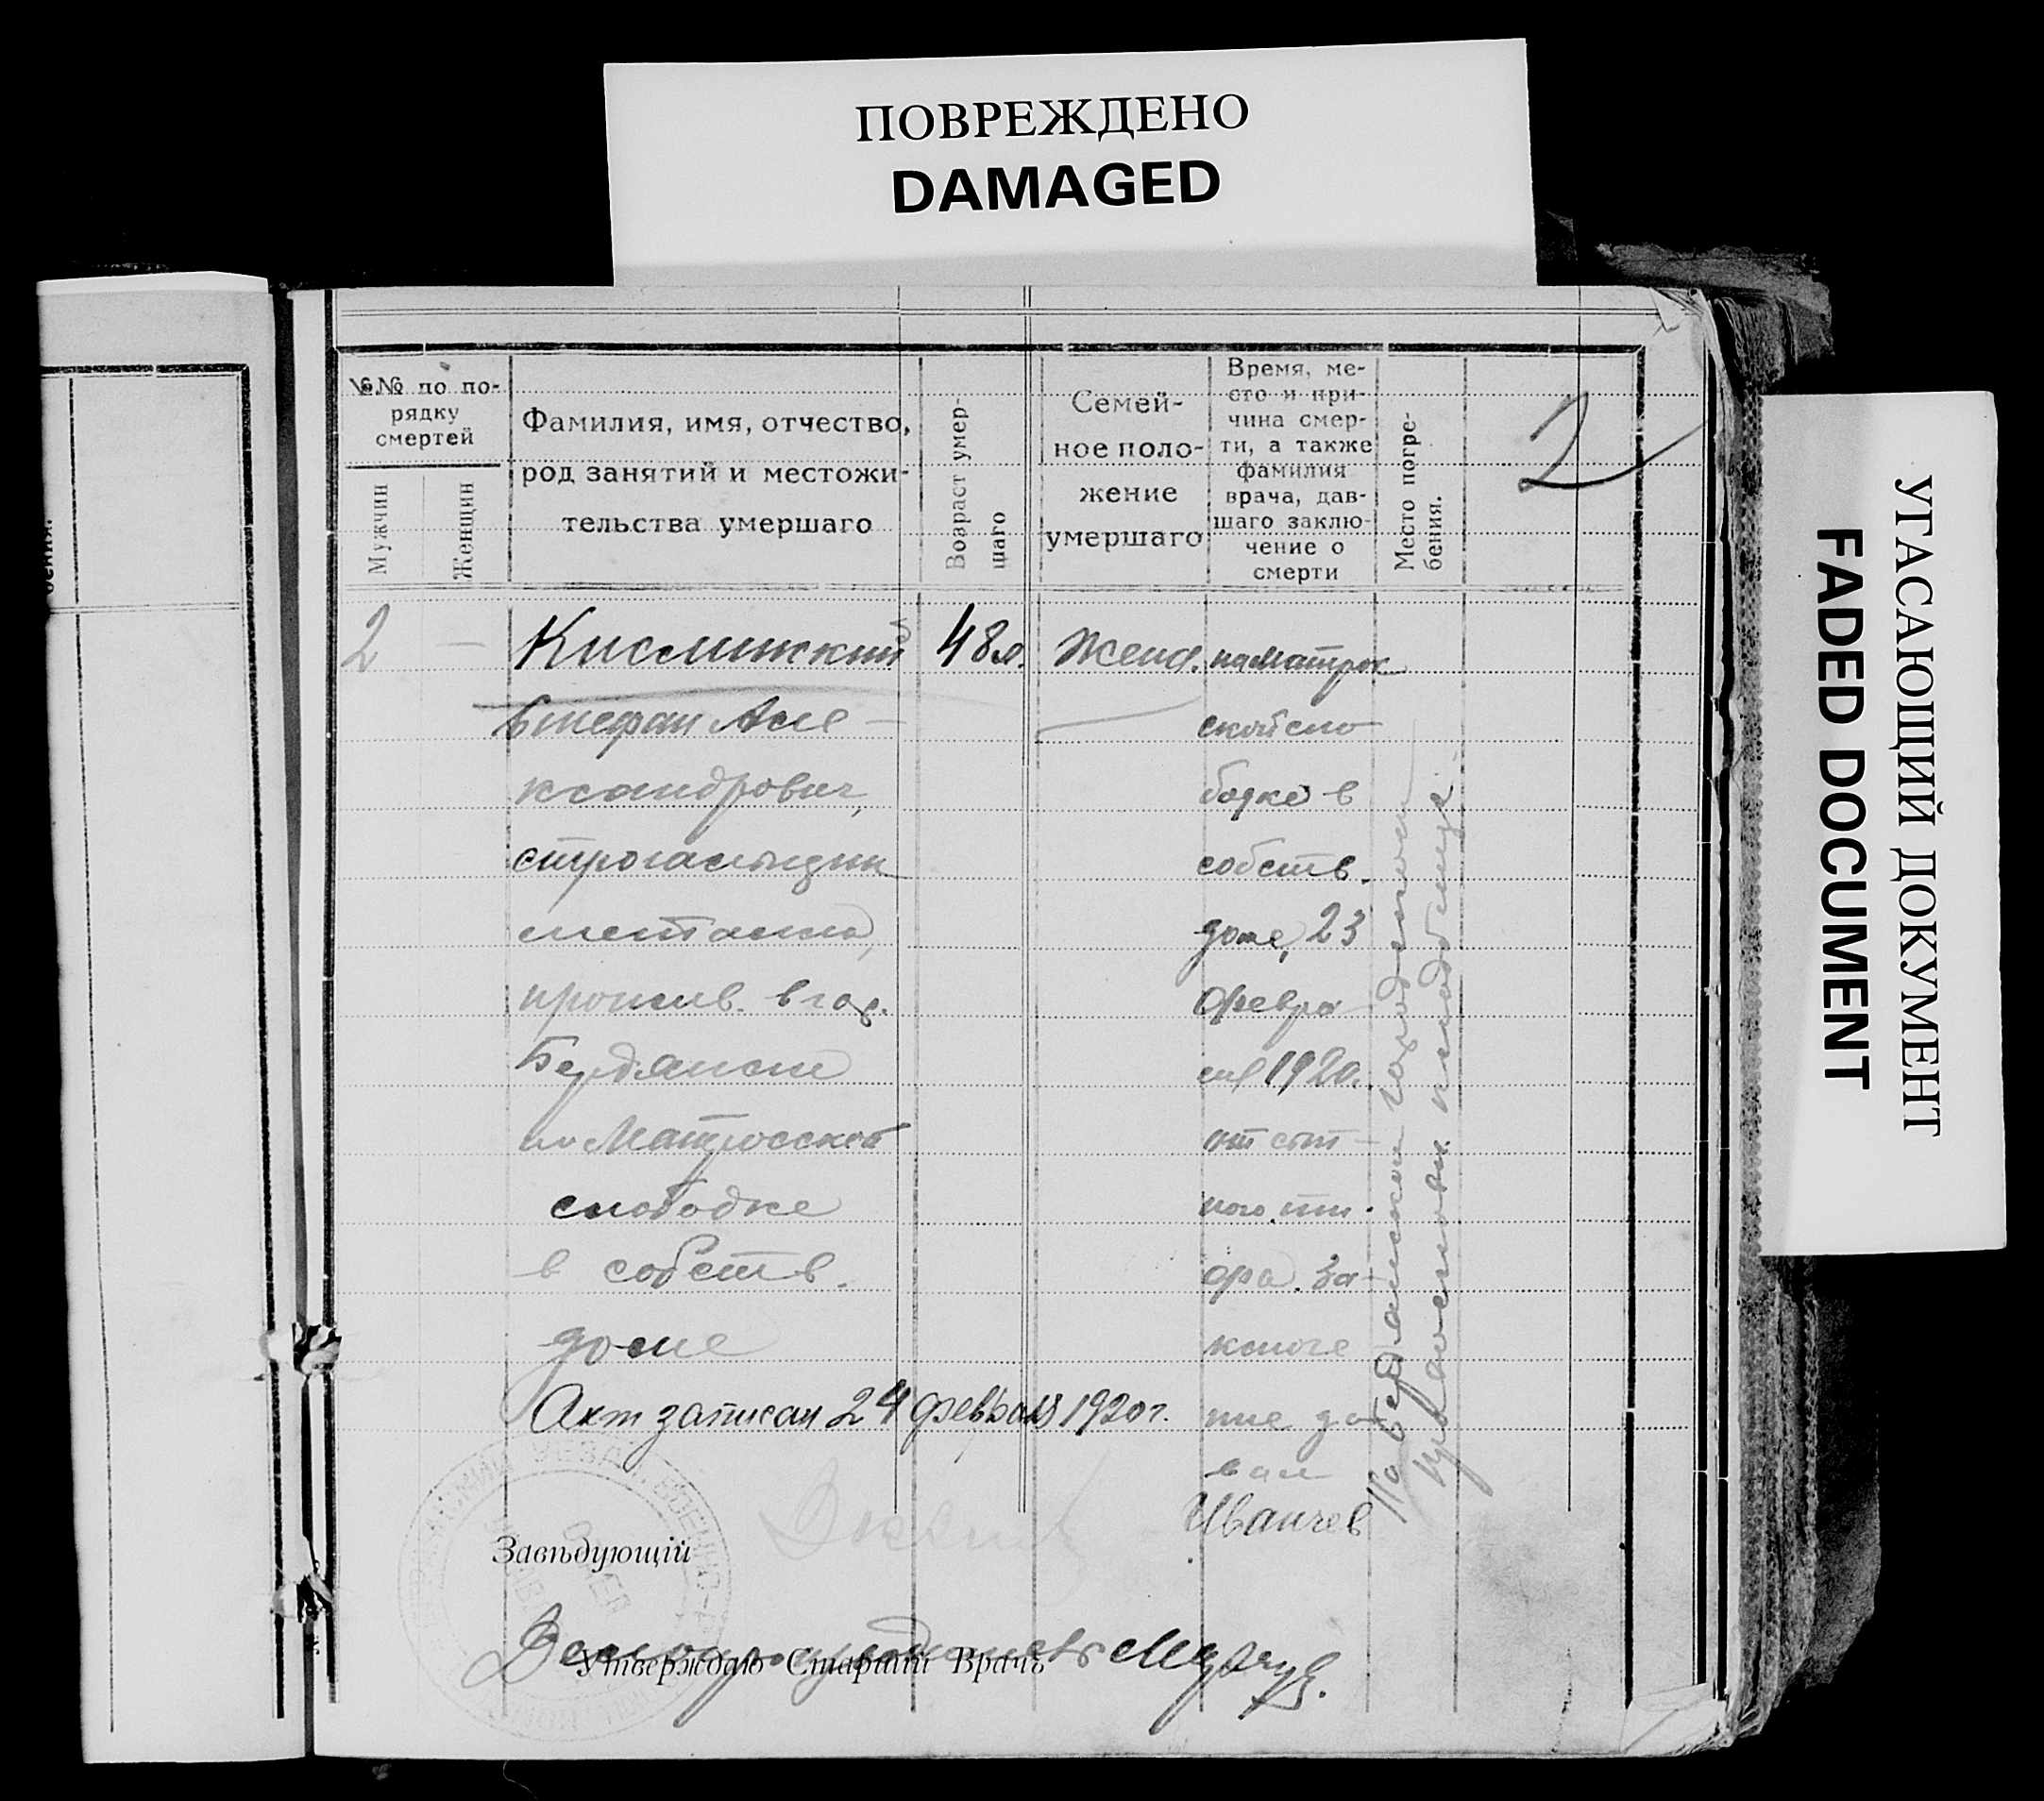 ПОВРЕЖДЕНО
DAMAGED
УГАСАЮЩИЙ ДОКУМЕНТ
FADED DOCUMENT
2
№№ по по-
рядку
смертей
Мужчин
Женщин
Фамилия, имя, отчество,
род занятий и местожи-
тельства умершаго
Возраст умер-
шаго
Семей-
ное поло-
жение
умершаго
Время, ме-
сто и при-
чина смер-
ти, а также
фамилия
врача, дав-
шаго заклю-
чение о
смерти
Место погре-
бения.
бения.
2 —
Кислинский
Стефан Але-
ксандрович,
прожив. в гор.
Бердянске
по Матросской
слободке
в собств.
доме
48 л.
Женат.
на Матрос
ской сло
бодке в
собств.
доме, 23
Февра
ля 1920 г.
от сып-
ного ти-
фа. За-
ключе
ние да
вал
Иванчев
На Бердянском городском
православн. кладбище
Акт записан 24 февраля 1920 г.
Завѣдующій
Утверждаю Старшій Врачъ